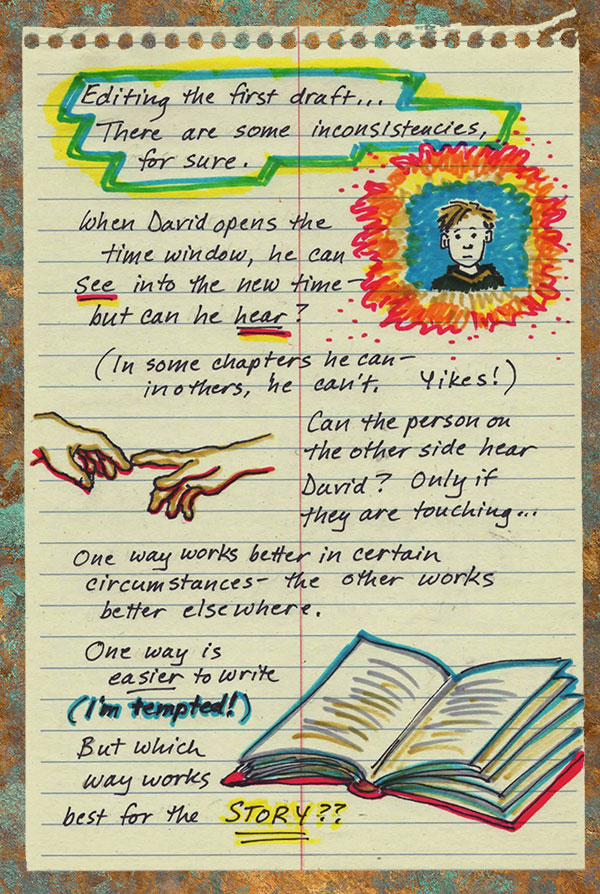 Editing the first draft...
There are some inconsistencies,
for sure.
When David opens the
time window, he can
see into the new time-
but can he hear?
(In some chapters he can-
in others, he can't. Yikes!)
Can the person on
the other side hear
David? Only if
they are touching...
One way works better in certain
circumstances- the other works
better elsewhere.
One way is
easier to write
(I'm tempted!)
But which
way works
best for the STORY??